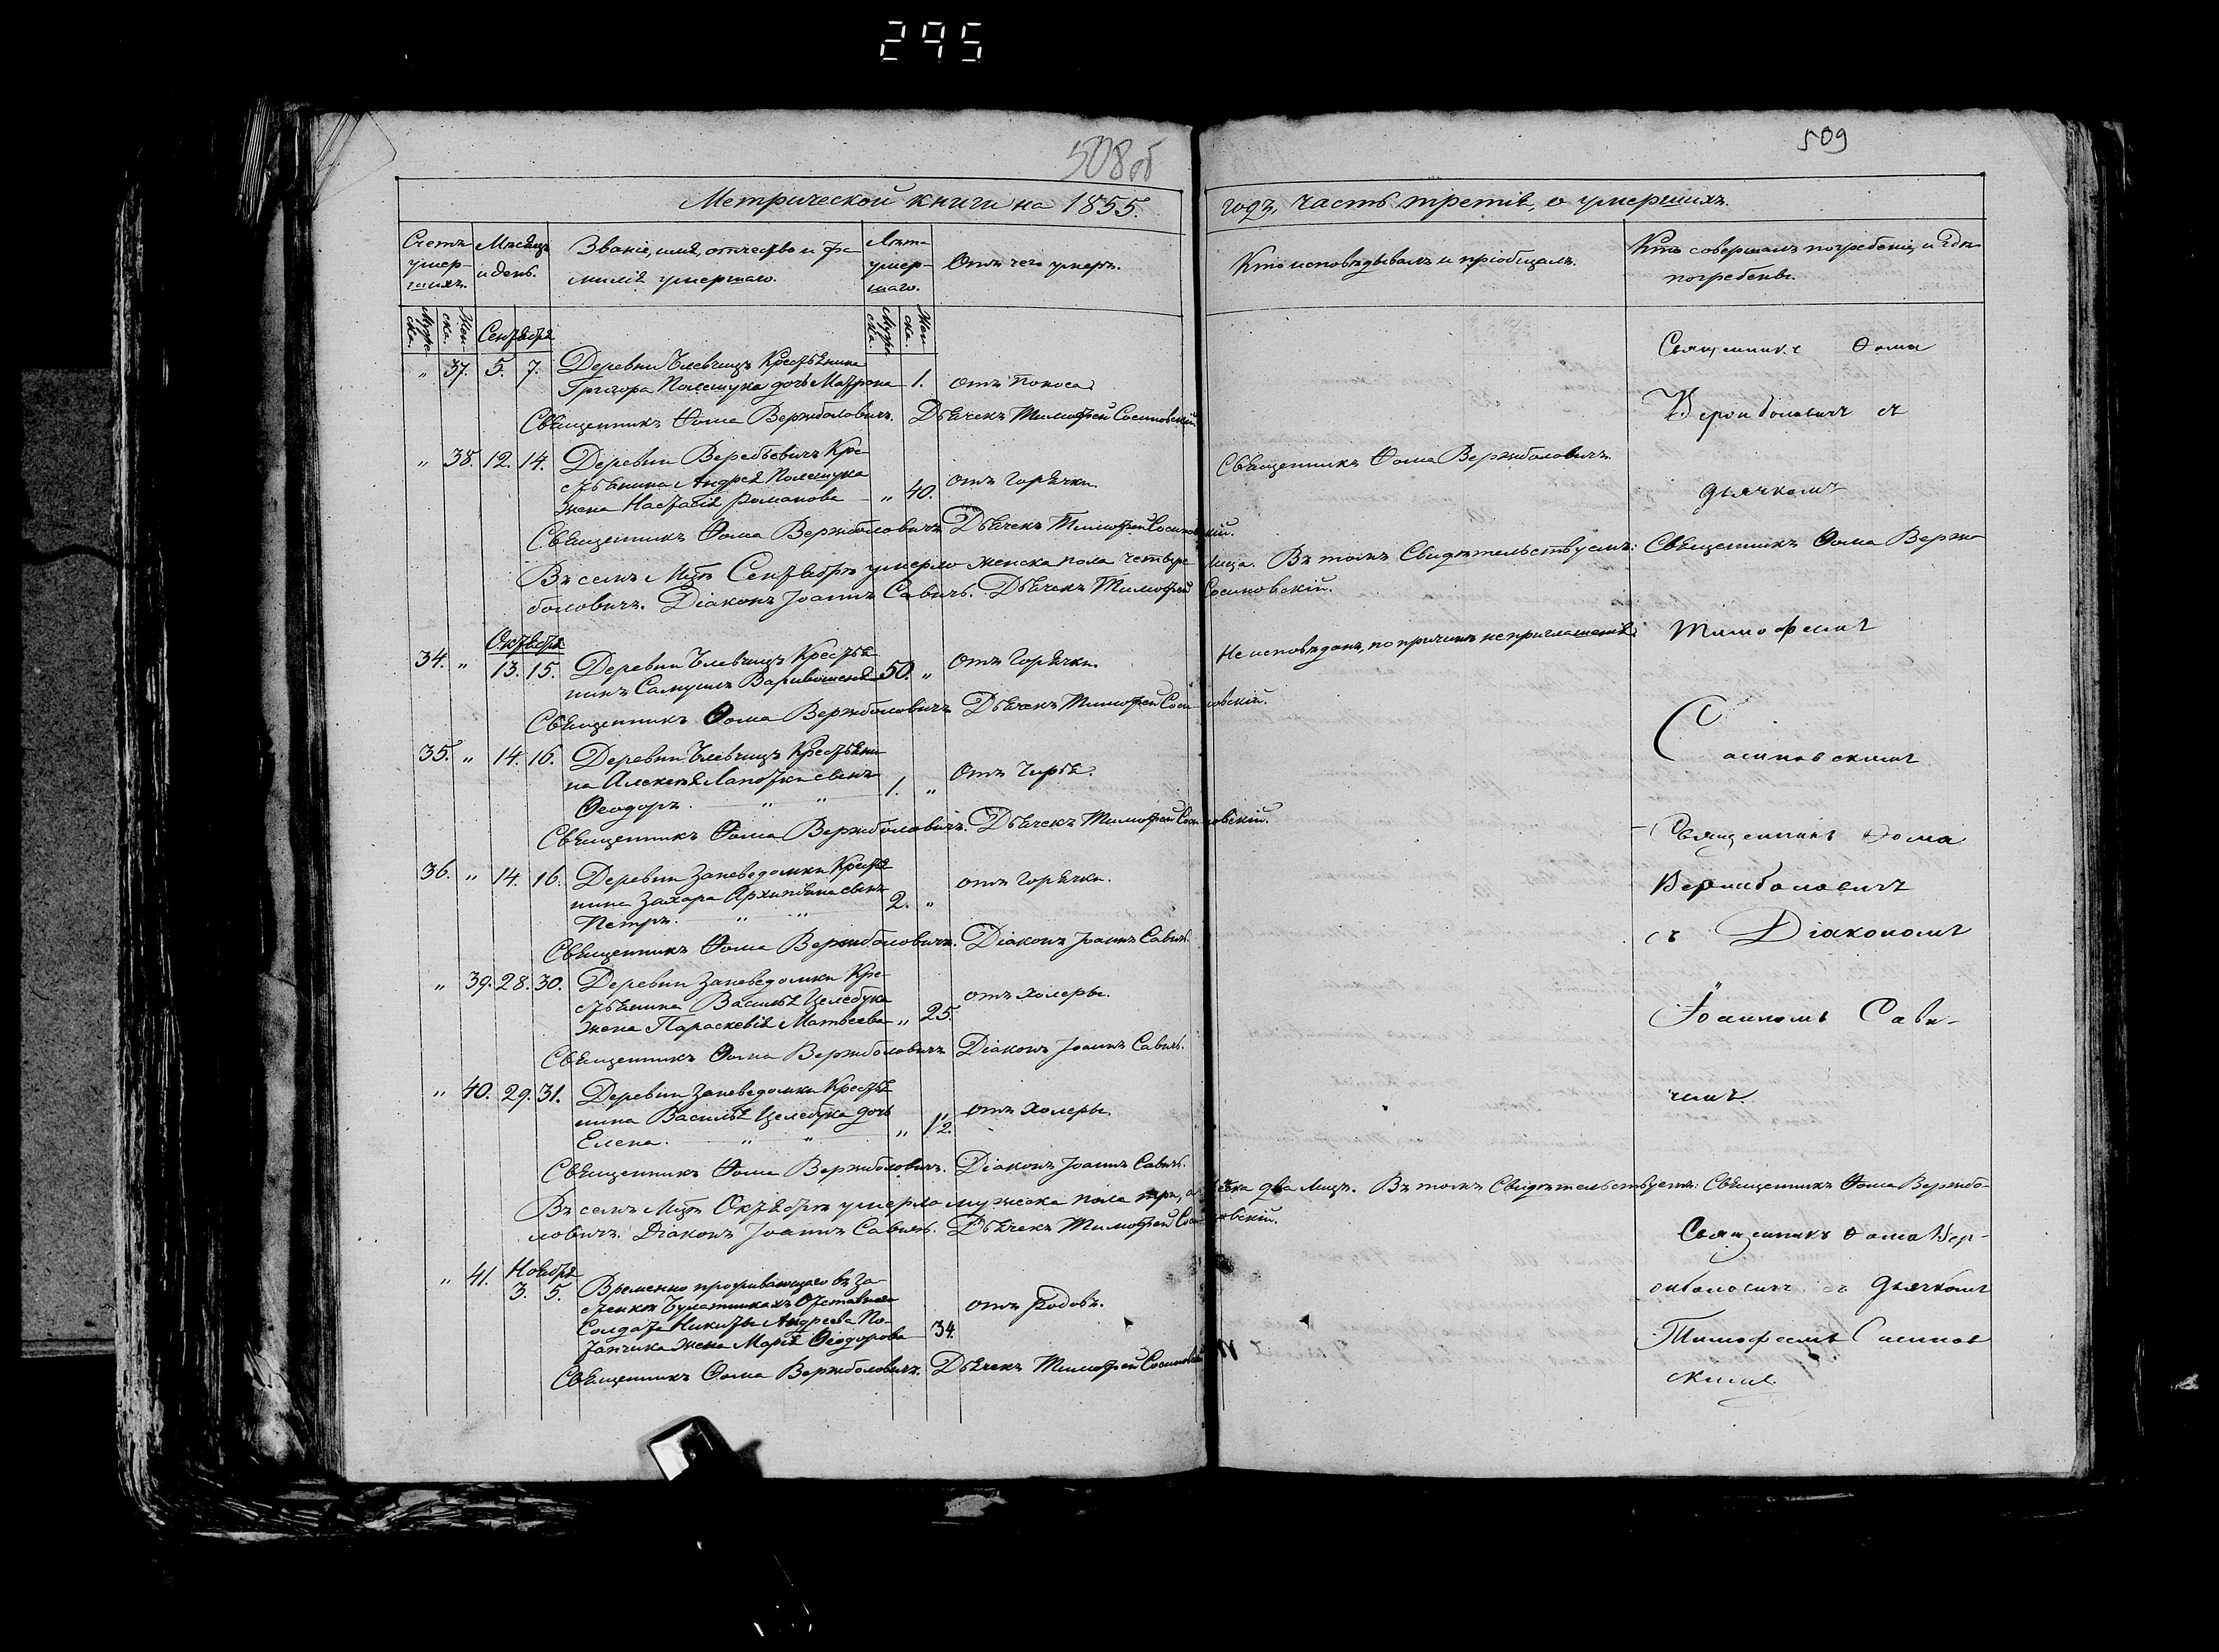 295
508об
509
Метрической книги на 1855.
годъ, часть третія, о умершихъ.
Счетъ умер-шихъ.
Мѣсяцъ и день.
Званіе, имя, отчество и фа-
милія умершаго.
Лѣта умер-шаго.
Отъ чего умеръ.
Кто исповѣдывалъ и пріобщалъ.
Кто совершалъ погребеніе, и гдѣ
погребены.
Муже-ска.
Жен-ска.
Сентября
Муже-ска.
Жен-ска.
„ 37. 5. 7. Деревни Крестьянина
Григора Полещука дочь Матрона 1. отъ поноса.
Священникъ Ѳома Вержболовичъ. Дьячекъ Тимофей Сосиновскій.
Священникъ Ѳома
Вержболовичъ съ
дьячкомъ
„ 38. 12. 14. Деревни Веребьевичъ Кре-
стьянина Андрея Полещука
жена Настасія Романова „ 40. отъ Горячки.
Священникъ Ѳома Вержболовичъ.
Священникъ Ѳома Вержболовичъ. Дьячекъ Тимофей Сосиновскій.
Въ семъ Мцѣ Сентябрѣ умерло женска пола четыре Лица. Въ томъ Свидѣтельствуемъ: Священникъ Ѳома Верж-
боловичъ. Діаконъ Іоаннъ Савичъ. Дьячекъ Тимофей Сосиновскій.
Октября
34. „ 13. 15. Деревни Крестья-
нинъ Самуилъ 50. „ отъ Горячки.
Не исповѣданъ, по причинѣ неприглашенія.
Священникъ Ѳома Вержболовичъ. Дьячекъ Тимофей Сосиновскій.
Тимофеемъ
Сосиновскимъ
35. „ 14. 16. Деревни Крестьяни-
на Алексея сынъ
Ѳеодоръ. „ „ 1. „ Отъ Чирья.
Священникъ Ѳома Вержболовичъ. Дьячекъ Тимофей Сосиновскій.
Священникъ Ѳома
Вержболовичъ
съ Діакономъ
Іоанномъ Сави-
чемъ.
36. „ 14. 16. Деревни Заневедомки Крестья-
нина Захара сынъ
Петръ. „ „ 2. „ отъ горячки.
Священникъ Ѳома Вержболовичъ. Діаконъ Іоаннъ Савичъ.
„ 39. 28. 30. Деревни Заневедомки Кре-
стьянина Василья Целебука
жена Параскевія Матвеева „ 25. отъ холеры.
Священникъ Ѳома Вержболовичъ. Діаконъ Іоаннъ Савичъ.
„ 40. 29. 31. Деревни Заневедомки Крестья-
нина Василья Целебука дочь
Елена. „ „ „ 12. отъ холеры.
Священникъ Ѳома Вержболовичъ. Діаконъ Іоаннъ Савичъ.
Въ семъ Мцѣ Октябрѣ умерло мужеска пола три, а женска два Лицъ. Въ томъ Свидѣтельствуемъ: Священникъ Ѳома Вержбо-
ловичъ. Діаконъ Іоаннъ Савичъ. Дьячекъ Тимофей Сосиновскій.
Ноября
„ 41. 3. 5. Временно проживающаго въ За-
стенкѣ Отставнаго
Солдата Никиты Андреева По-
жена Марія Ѳеодорова 34. отъ родовъ.
Священникъ Ѳома Вержболовичъ. Дьячекъ Тимофей Сосиновскій
Священникъ Ѳома Вер-
жболовичъ съ дьячкомъ
Тимофеемъ Сосинов
скимъ.